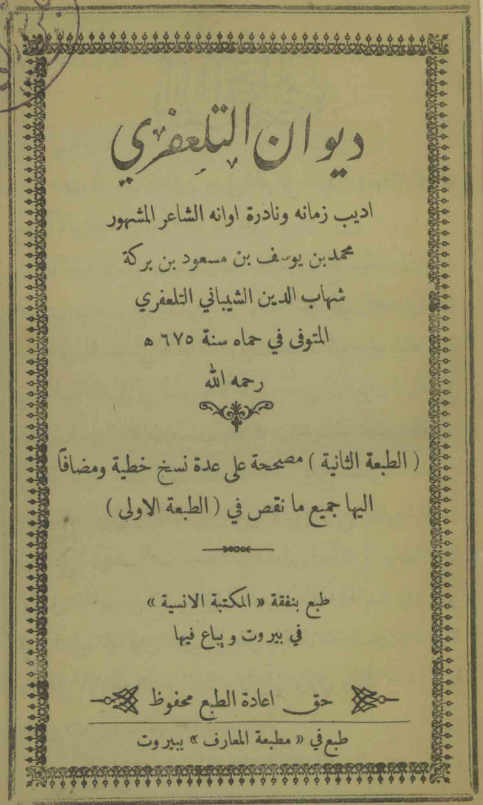 ديوان التلعفري
اديب زمانه ونادرة اوانه الشاعر المشهور
محمد بن يوسف بن مسعود بن بركة
شهاب الدين الشيباني التلعفري
المتوفى في حماه سنة ٦٧٥ ه
رحمه الله
( الطبعة الثانية ) مصححة على عدة نسخ خطية ومضافاً
اليها جميع ما نقص في ( الطبعة الاولى )
طبع بنفقة « المكتبة الانسية »
في بيروت ويباع فيها
حق اعادة الطبع محفوظ
طبع في « مطبعة المعارف » ببيروت